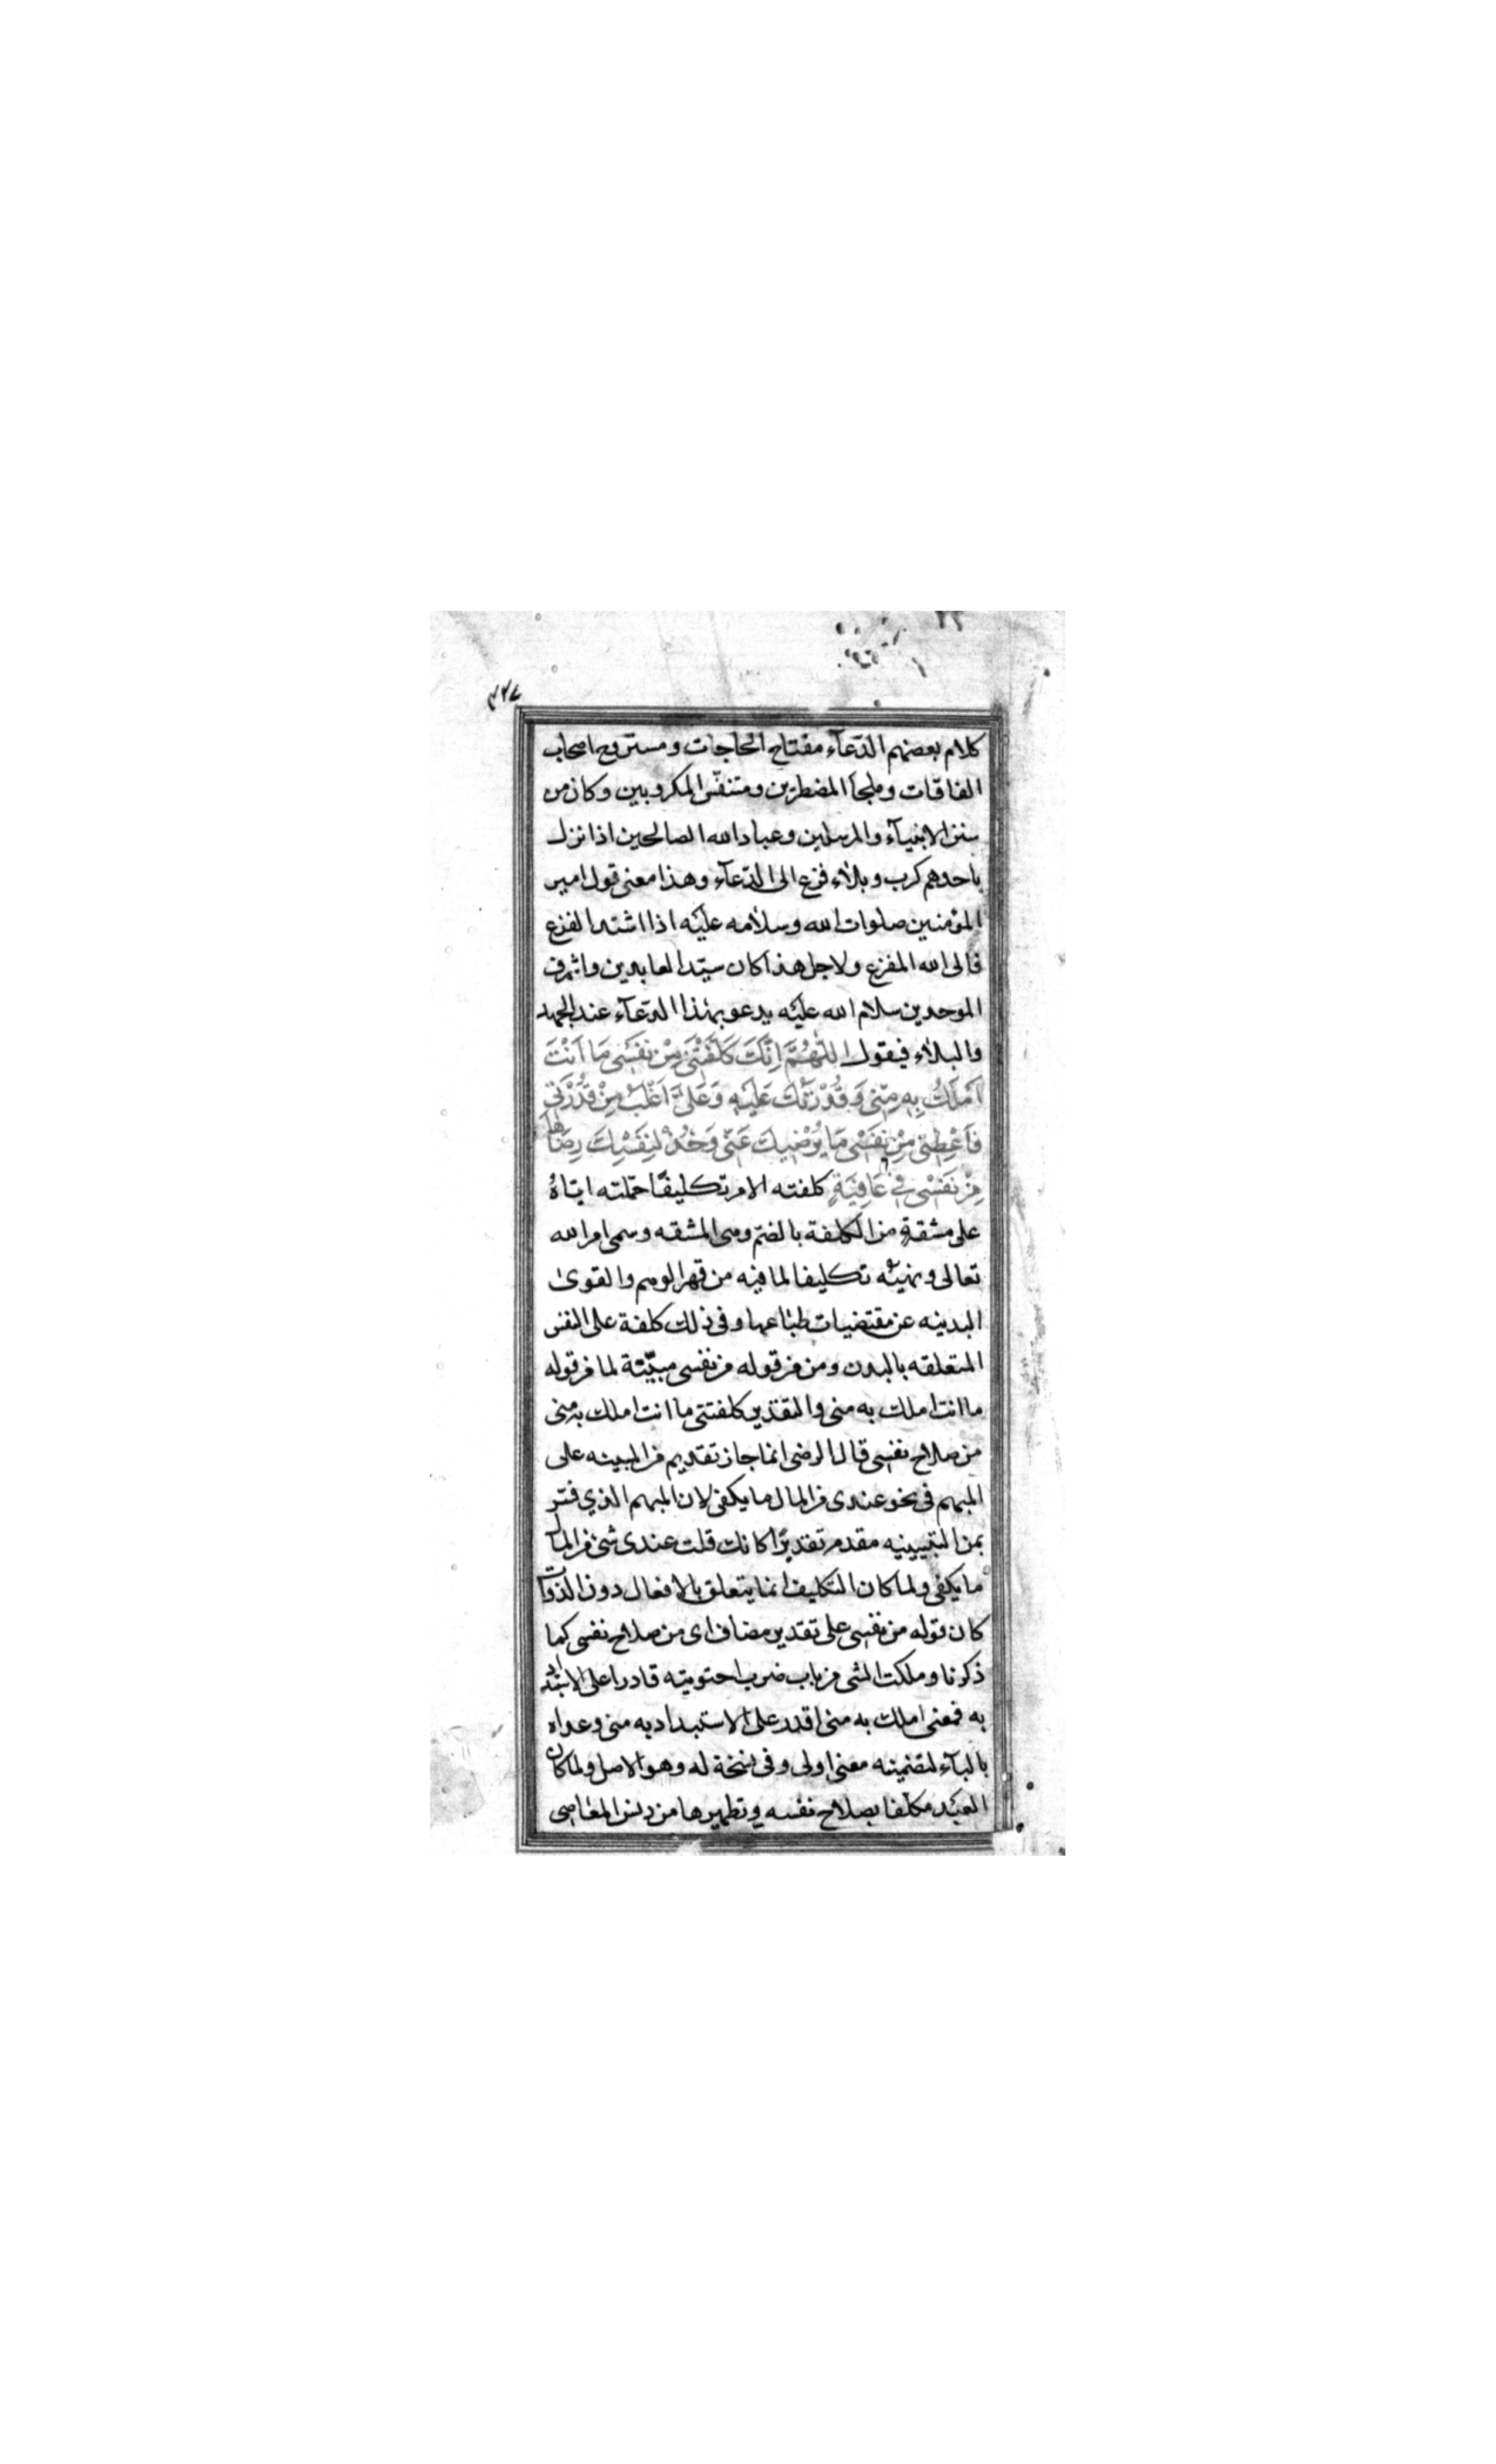 ٣٢٧
كلام بعضهم الدّعآء مفتاح الحاجات ومستروح اصحاب
الفاقات وملجأ المضطرّين ومتنفّس المكروبين وكان من
سنن الانبيآء والمرسلين وعباد الله الصالحين اذا نزل
باحدهم كرب وبلآء فزع الى الدّعآء وهذا معنى قول امير
المؤمنين صلوات الله وسلامه عليه اذا اشتد الفزع
فالى الله المفزع ولاجل هذا كان سيّد العابدين واشرف
الموحدين سلام الله عليه يدعو بهذا الدّعآء عند الجهد
والبلآء فيقول اللّٰهُمَّ اِنَّكَ كَلَّفْتَنى مِنْ نَفْسى مَا اَنْتَ
اَمْلَكُ بِهِ مِنّى وَقُدْرَتُكَ عَلَيْهِ وَعَلَىَّ اَغْلَبُ مِنْ قُدْرَتى
فَاَعْطِنى مِنْ نَفْسى مَا يُرْضيكَ عَنّى وَخُذْ لِنَفْسِكَ رِضَاهَا
مِنْ نَفْسى فى عَافِيَةٍ كلفته الامر تكليفًا حمّلته ايّاهُ
على مشقةٍ من الكلفة بالضمّ وهى المشقه وسمى امر الله
تعالى ونهيه تكليفا لما فيه من قهر الوهم والقوىٰ
البدنيه عن مقتضيات طباعها وفى ذلك كلفة على النفس
المتعلقه بالبدن ومن فى قوله من نفسى مبيّنة لما فى قوله
ما انت املك به منى والتقدير كلفتنى ما انت املك به منى
من صلاح نفسى قال الرضى انما جاز تقديم من المبينه على
المبهم فى نحو عندى من المال ما يكفى لان المبهم الذي فسّر
بمن التبيينيه مقدم تقديرًا كانك قلت عندى شئ من المال
ما يكفى ولما كان التكليف انما يتعلق بالافعال دون الذوات
كان قوله من نفسى على تقدير مضاف اى من صلاح نفسى كما
ذكرنا وملكت الشى من باب ضرب احتويته قادرا على الاستبداد
به فمعنى املك به منى اقدر على الاستبداد به منى وعداه
بالبآء لتضمينه معنى اولى وفى نسخة له وهو الاصل ولما كان
العبد مكلّفا بصلاح نفسه وتطهيرها من دنس المعاصى